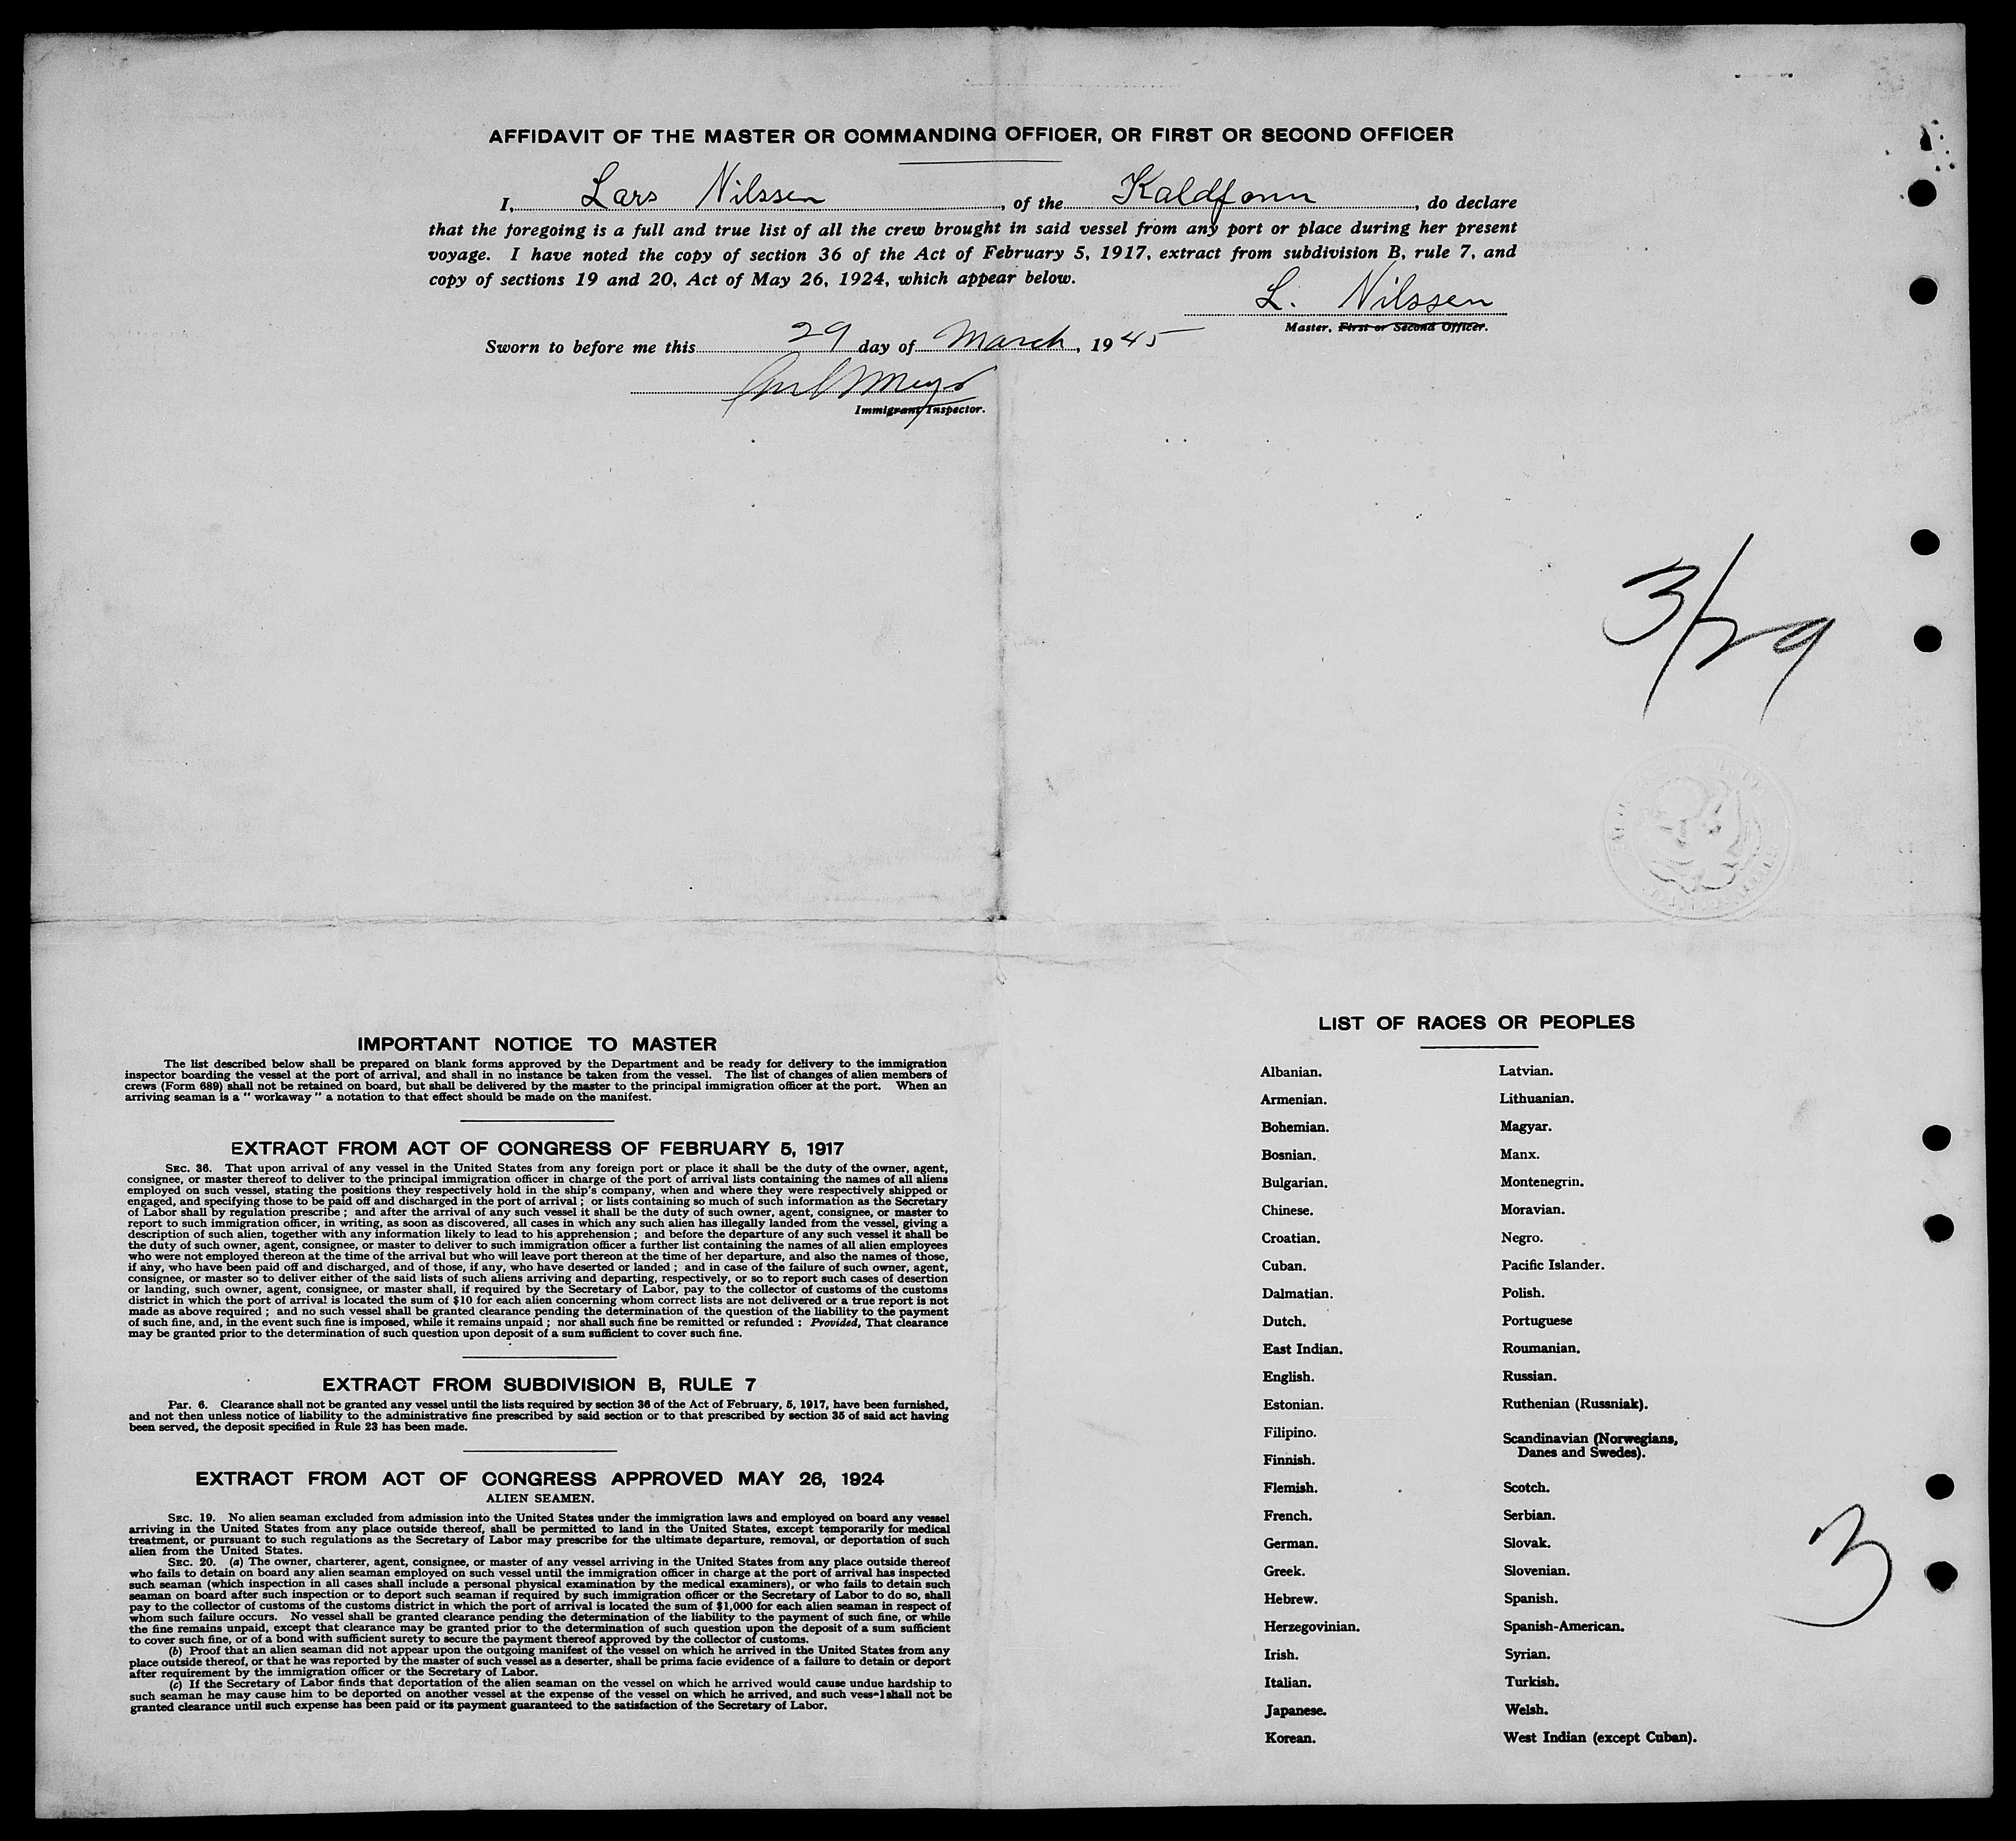 AFFIDAVIT OF THE MASTER OR COMMANDING OFFICER, OR FIRST OR SECOND OFFICER
I, Lars Nilssen, of the Kaldfonn, do declare
that the foregoing is a full and true list of all the crew brought in said vessel from any port or place during her present
voyage. I have noted the copy of section 36 of the Act of February 5, 1917, extract from subdivision B, rule 7, and
copy of sections 19 and 20, Act of May 26, 1924, which appear below.
L. Nilssen
Master, First or Second Officer.
Sworn to before me this 29 day of March, 1945
Immigrant Inspector.
3/29
IMPORTANT NOTICE TO MASTER
The list described below shall be prepared on blank forms approved by the Department and be ready for delivery to the immigration
inspector boarding the vessel at the port of arrival, and shall in no instance be taken from the vessel. The list of changes of alien members of
crews (Form 689) shall not be retained on board, but shall be delivered by the master to the principal immigration officer at the port. When an
arriving seaman is a "workaway" a notation to that effect should be made on the manifest.
EXTRACT FROM ACT OF CONGRESS OF FEBRUARY 5, 1917
SEC. 36. That upon arrival of any vessel in the United States from any foreign port or place it shall be the duty of the owner, agent,
consignee, or master thereof to deliver to the principal immigration officer in charge of the port of arrival lists containing the names of all aliens
employed on such vessel, stating the positions they respectively hold in the ship's company, when and where they were respectively shipped or
engaged, and specifying those to be paid off and discharged in the port of arrival; or lists containing so much of such information as the Secretary
of Labor shall by regulation prescribe; and after the arrival of any such vessel it shall be the duty of such owner, agent, consignee, or master to
report to such immigration officer, in writing, as soon as discovered, all cases in which any such alien has illegally landed from the vessel, giving a
description of such alien, together with any information likely to lead to his apprehension; and before the departure of any such vessel it shall be
the duty of such owner, agent, consignee, or master to deliver to such immigration officer a further list containing the names of all alien employees
who were not employed thereon at the time of the arrival but who will leave port thereon at the time of her departure, and also the names of those,
if any, who have been paid off and discharged, and of those, if any, who have deserted or landed; and in case of the failure of such owner, agent,
consignee, or master so to deliver either of the said lists of such aliens arriving and departing, respectively, or so to report such cases of desertion
or landing, such owner, agent, consignee, or master shall, if required by the Secretary of Labor, pay to the collector of customs of the customs
district in which the port of arrival is located the sum of $10 for each alien concerning whom correct lists are not delivered or a true report is not
made as above required; and no such vessel shall be granted clearance pending the determination of the question of the liability to the payment
of such fine, and, in the event such fine is imposed, while it remains unpaid; nor shall such fine be remitted or refunded: Provided, That clearance
may be granted prior to the determination of such question upon deposit of a sum sufficient to cover such fine.
EXTRACT FROM SUBDIVISION B, RULE 7
Par. 6. Clearance shall not be granted any vessel until the lists required by section 36 of the Act of February, 5, 1917, have been furnished,
and not then unless notice of liability to the administrative fine prescribed by said section or to that prescribed by section 35 of said act having
been served, the deposit specified in Rule 23 has been made.
EXTRACT FROM ACT OF CONGRESS APPROVED MAY 26, 1924
ALIEN SEAMEN.
SEC. 19. No alien seaman excluded from admission into the United States under the immigration laws and employed on board any vessel
arriving in the United States from any place outside thereof, shall be permitted to land in the United States, except temporarily for medical
treatment, or pursuant to such regulations as the Secretary of Labor may prescribe for the ultimate departure, removal, or deportation of such
alien from the United States.
SEC. 20. (a) The owner, charterer, agent, consignee, or master of any vessel arriving in the United States from any place outside thereof
who fails to detain on board any alien seaman employed on such vessel until the immigration officer in charge at the port of arrival has inspected
such seaman (which inspection in all cases shall include a personal physical examination by the medical examiners), or who fails to detain such
seaman on board after such inspection or to deport such seaman if required by such immigration officer or the Secretary of Labor to do so, shall
pay to the collector of customs of the customs district in which the port of arrival is located the sum of $1,000 for each alien seaman in respect of
whom such failure occurs. No vessel shall be granted clearance pending the determination of the liability to the payment of such fine, or while
the fine remains unpaid, except that clearance may be granted prior to the determination of such question upon the deposit of a sum sufficient
to cover such fine, or of a bond with sufficient surety to secure the payment thereof approved by the collector of customs.
(b) Proof that an alien seaman did not appear upon the outgoing manifest of the vessel on which he arrived in the United States from any
place outside thereof, or that he was reported by the master of such vessel as a deserter, shall be prima facie evidence of a failure to detain or deport
after requirement by the immigration officer or the Secretary of Labor.
(c) If the Secretary of Labor finds that deportation of the alien seaman on the vessel on which he arrived would cause undue hardship to
such seaman he may cause him to be deported on another vessel at the expense of the vessel on which he arrived, and such vessel shall not be
granted clearance until such expense has been paid or its payment guaranteed to the satisfaction of the Secretary of Labor.
LIST OF RACES OR PEOPLES
Albanian.
Armenian.
Bohemian.
Bosnian.
Bulgarian.
Chinese.
Croatian.
Cuban.
Dalmatian.
Dutch.
East Indian.
English.
Estonian.
Filipino.
Finnish.
Flemish.
French.
German.
Greek.
Hebrew.
Herzegovinian.
Irish.
Italian.
Japanese.
Korean.
Latvian.
Lithuanian.
Magyar.
Manx.
Montenegrin.
Moravian.
Negro.
Pacific Islander.
Polish.
Portuguese
Roumanian.
Russian.
Ruthenian (Russniak).
Scandinavian (Norwegians,
Danes and Swedes).
Scotch.
Serbian.
Slovak.
Slovenian.
Spanish.
Spanish-American.
Syrian.
Turkish.
Welsh.
West Indian (except Cuban).
3